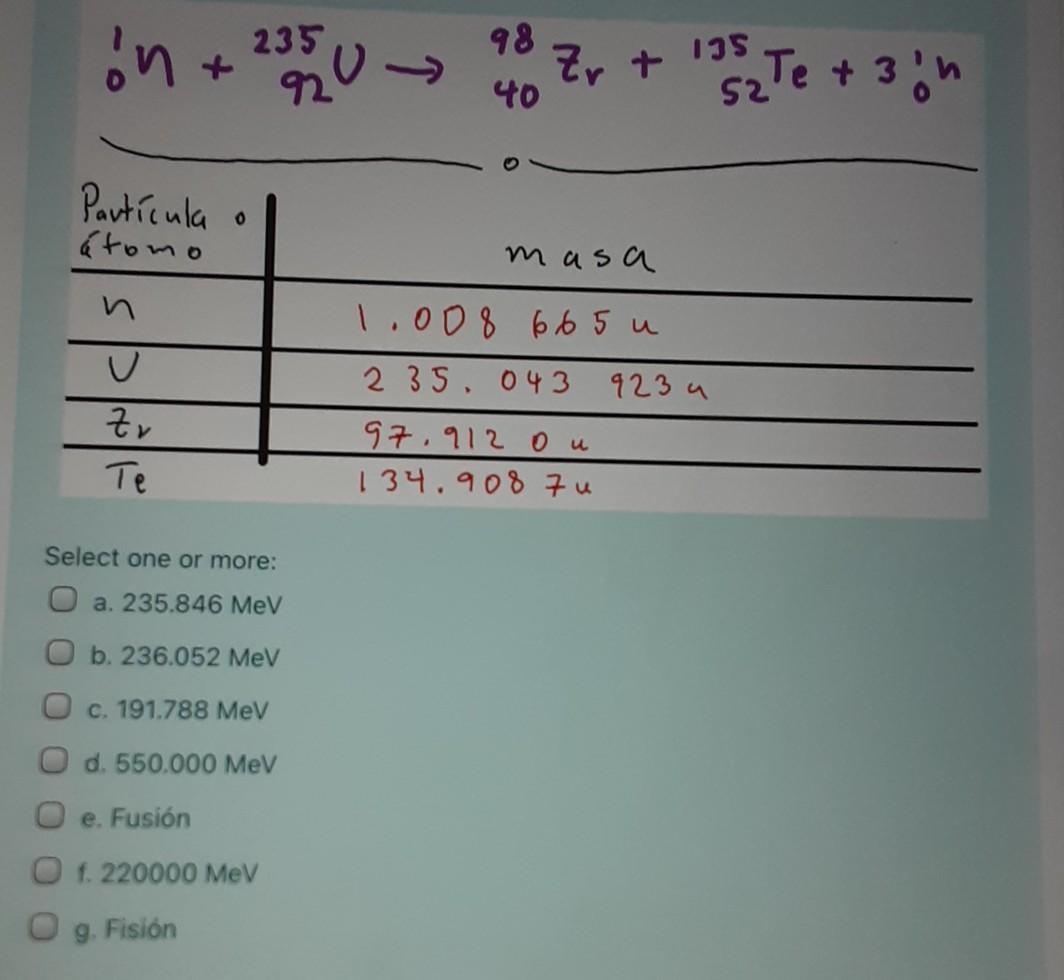 ¹₀n + ²³⁵₉₂U → ⁹⁸₄₀Zr + ¹³⁵₅₂Te + 3 ¹₀n
Partícula o
átomo
masa
n 1.008 665 u
U 235.043 923 u
Zr 97.912 0 u
Te 134.908 7 u
Select one or more:
a. 235.846 MeV
b. 236.052 MeV
c. 191.788 MeV
d. 550.000 MeV
e. Fusión
f. 220000 MeV
g. Fisión